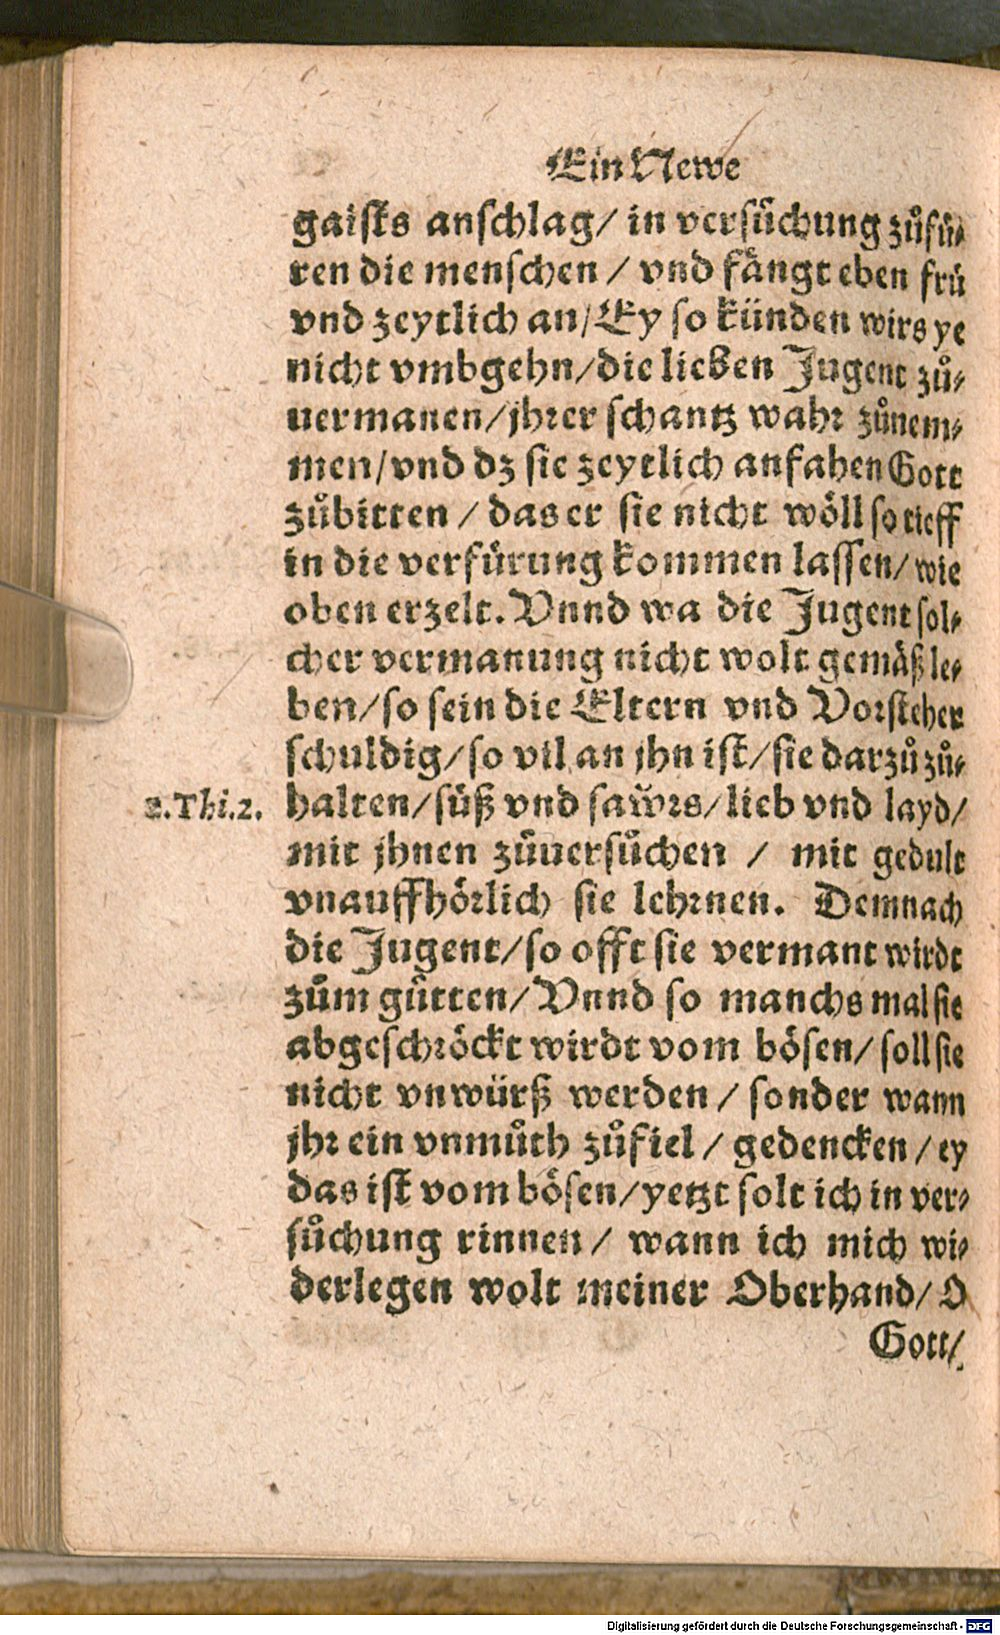 Ein Newe
gaists anschlag/ in versuͤchung zuͦfuͤ⸗
ren die menschen / vnd faͤngt eben fruͤ
vnd zeytlich an/ Ey so künden wirs ye
nicht vmbgehn/die lieben Jugent zuͦ⸗
uermanen/jhrer schantz wahr zuͦnem⸗
men/vnd dz sie zeytlich anfahen Gott
zuͦbitten / das er sie nicht woͤll so tieff
in die verfuͤrung kommen lassen/ wie
oben erzelt. Vnnd wa die Jugent sol⸗
cher vermanung nicht wolt gemaͤß le⸗
ben/so sein die Eltern vnd Vorsteher
schuldig/so vil an jhn ist/sie darzuͦ zuͦ⸗
2.Thi.2. halten/suͤß vnd sawrs/lieb vnd layd/
mit jhnen zuͦuersuͦchen / mit gedult
vnauffhoͤrlich sie lehrnen. Demnach
die Jugent/so offt sie vermant wirdt
zuͦm guͤtten/Vnnd so manchs mal sie
abgeschroͤckt wirdt vom boͤsen/ soll sie
nicht vnwürß werden / sonder wann
jhr ein vnmuͦth zuͦfiel / gedencken / ey
das ist vom boͤsen/yetzt solt ich in ver⸗
suͦchung rinnen / wann ich mich wi⸗
derlegen wolt meiner Oberhand/ O
Gott/
Digitalisierung gefördert durch die Deutsche Forschungsgemeinschaft - DFG